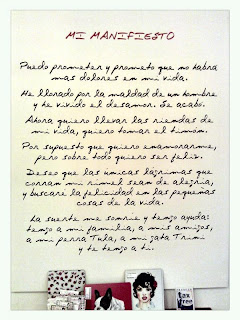 MI MANIFIESTO
Puedo prometer y prometo que no habrá
más dolores en mi vida.
He llorado por la maldad de un hombre
y he vivido el desamor. Se acabó.
Ahora quiero llevar las riendas de
mi vida, quiero tomar el timón.
Por supuesto que quiero enamorarme,
pero sobre todo quiero ser feliz.
Deseo que las únicas lágrimas que
corran mi rímel sean de alegría,
y buscaré la felicidad en las pequeñas
cosas de la vida.
La suerte me sonríe y tengo ayuda:
tengo a mi familia, a mis amigos,
a mi perra Tuka, a mi gata Trini
y te tengo a ti.
tax
free